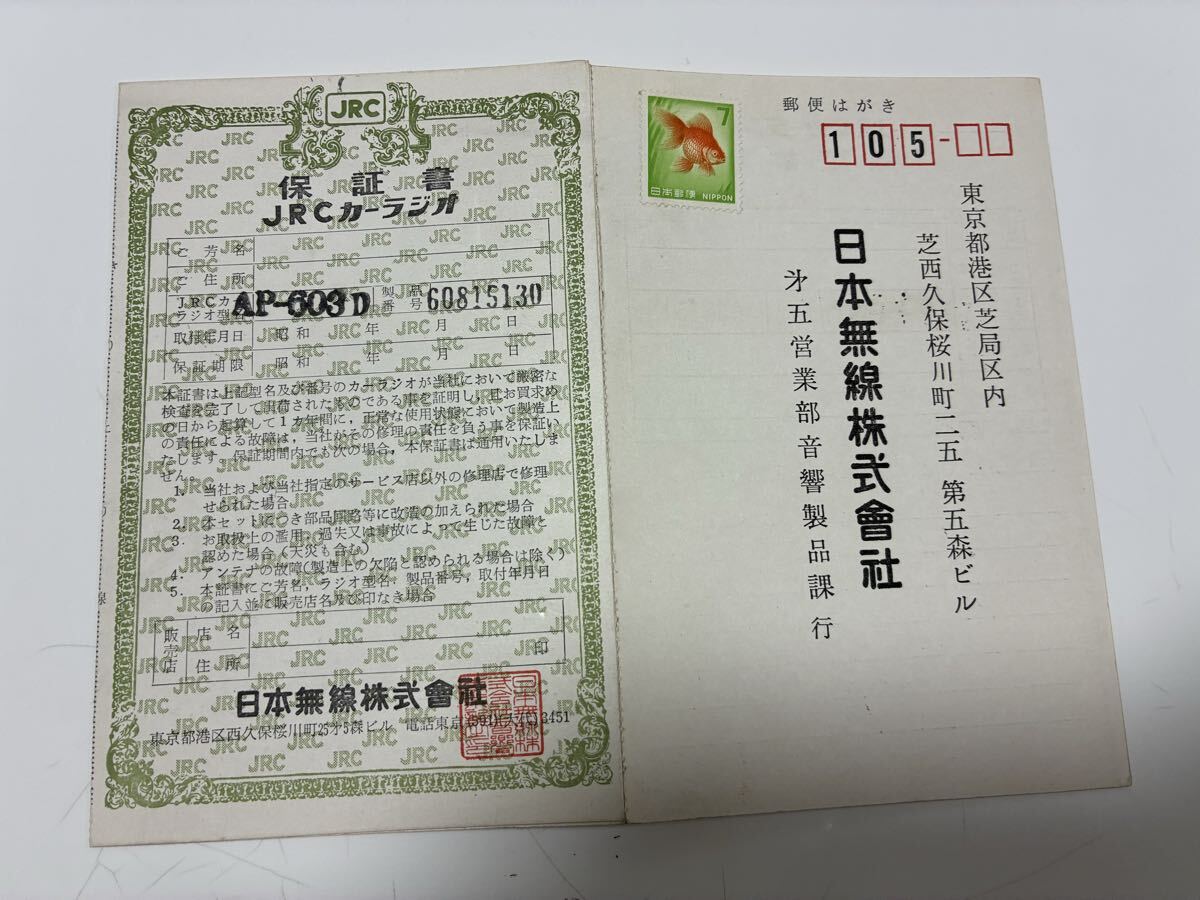 JRC
保証書
JRCカーラジオ
ご芳名
ご住所
JRCカーラジオ型名
AP-603D
製品番号
60815130
取付年月日 昭和 年 月 日
保証期限 昭和 年 月 日
本証書は上記型名及び番号のカーラジオが当社において厳密な
検査を完了して出荷されたものである事を証明し,且お買求め
の日から起算して1カ年間に,正常な使用状態において製造上
の責任による故障は,当社がその修理の責任を負う事を保証い
たします。保証期間内でも次の場合,本保証書は通用いたしま
せん。
1. 当社および当社指定のサービス店以外の修理店で修理
せられた場合
2. 本セットにつき部品回路等に改造の加えられた場合
3. お取扱上の濫用,過失又は事故によって生じた故障と
認めた場合(天災も含む)
4. アンテナの故障(製造上の欠陥と認められる場合は除く)
5. 本証書にご芳名,ラジオ型名,製品番号,取付年月日
の記入並に販売店名及び印なき場合
販売店
店名
住所
印
日本無線株式會社
東京都港区西久保桜川町25才5森ビル 電話東京(591)(大代)3451
7
日本郵便 NIPPON
郵便はがき
105-
東京都港区芝局区内
芝西久保桜川町二五 第五森ビル
日本無線株式會社
才五営業部音響製品課行